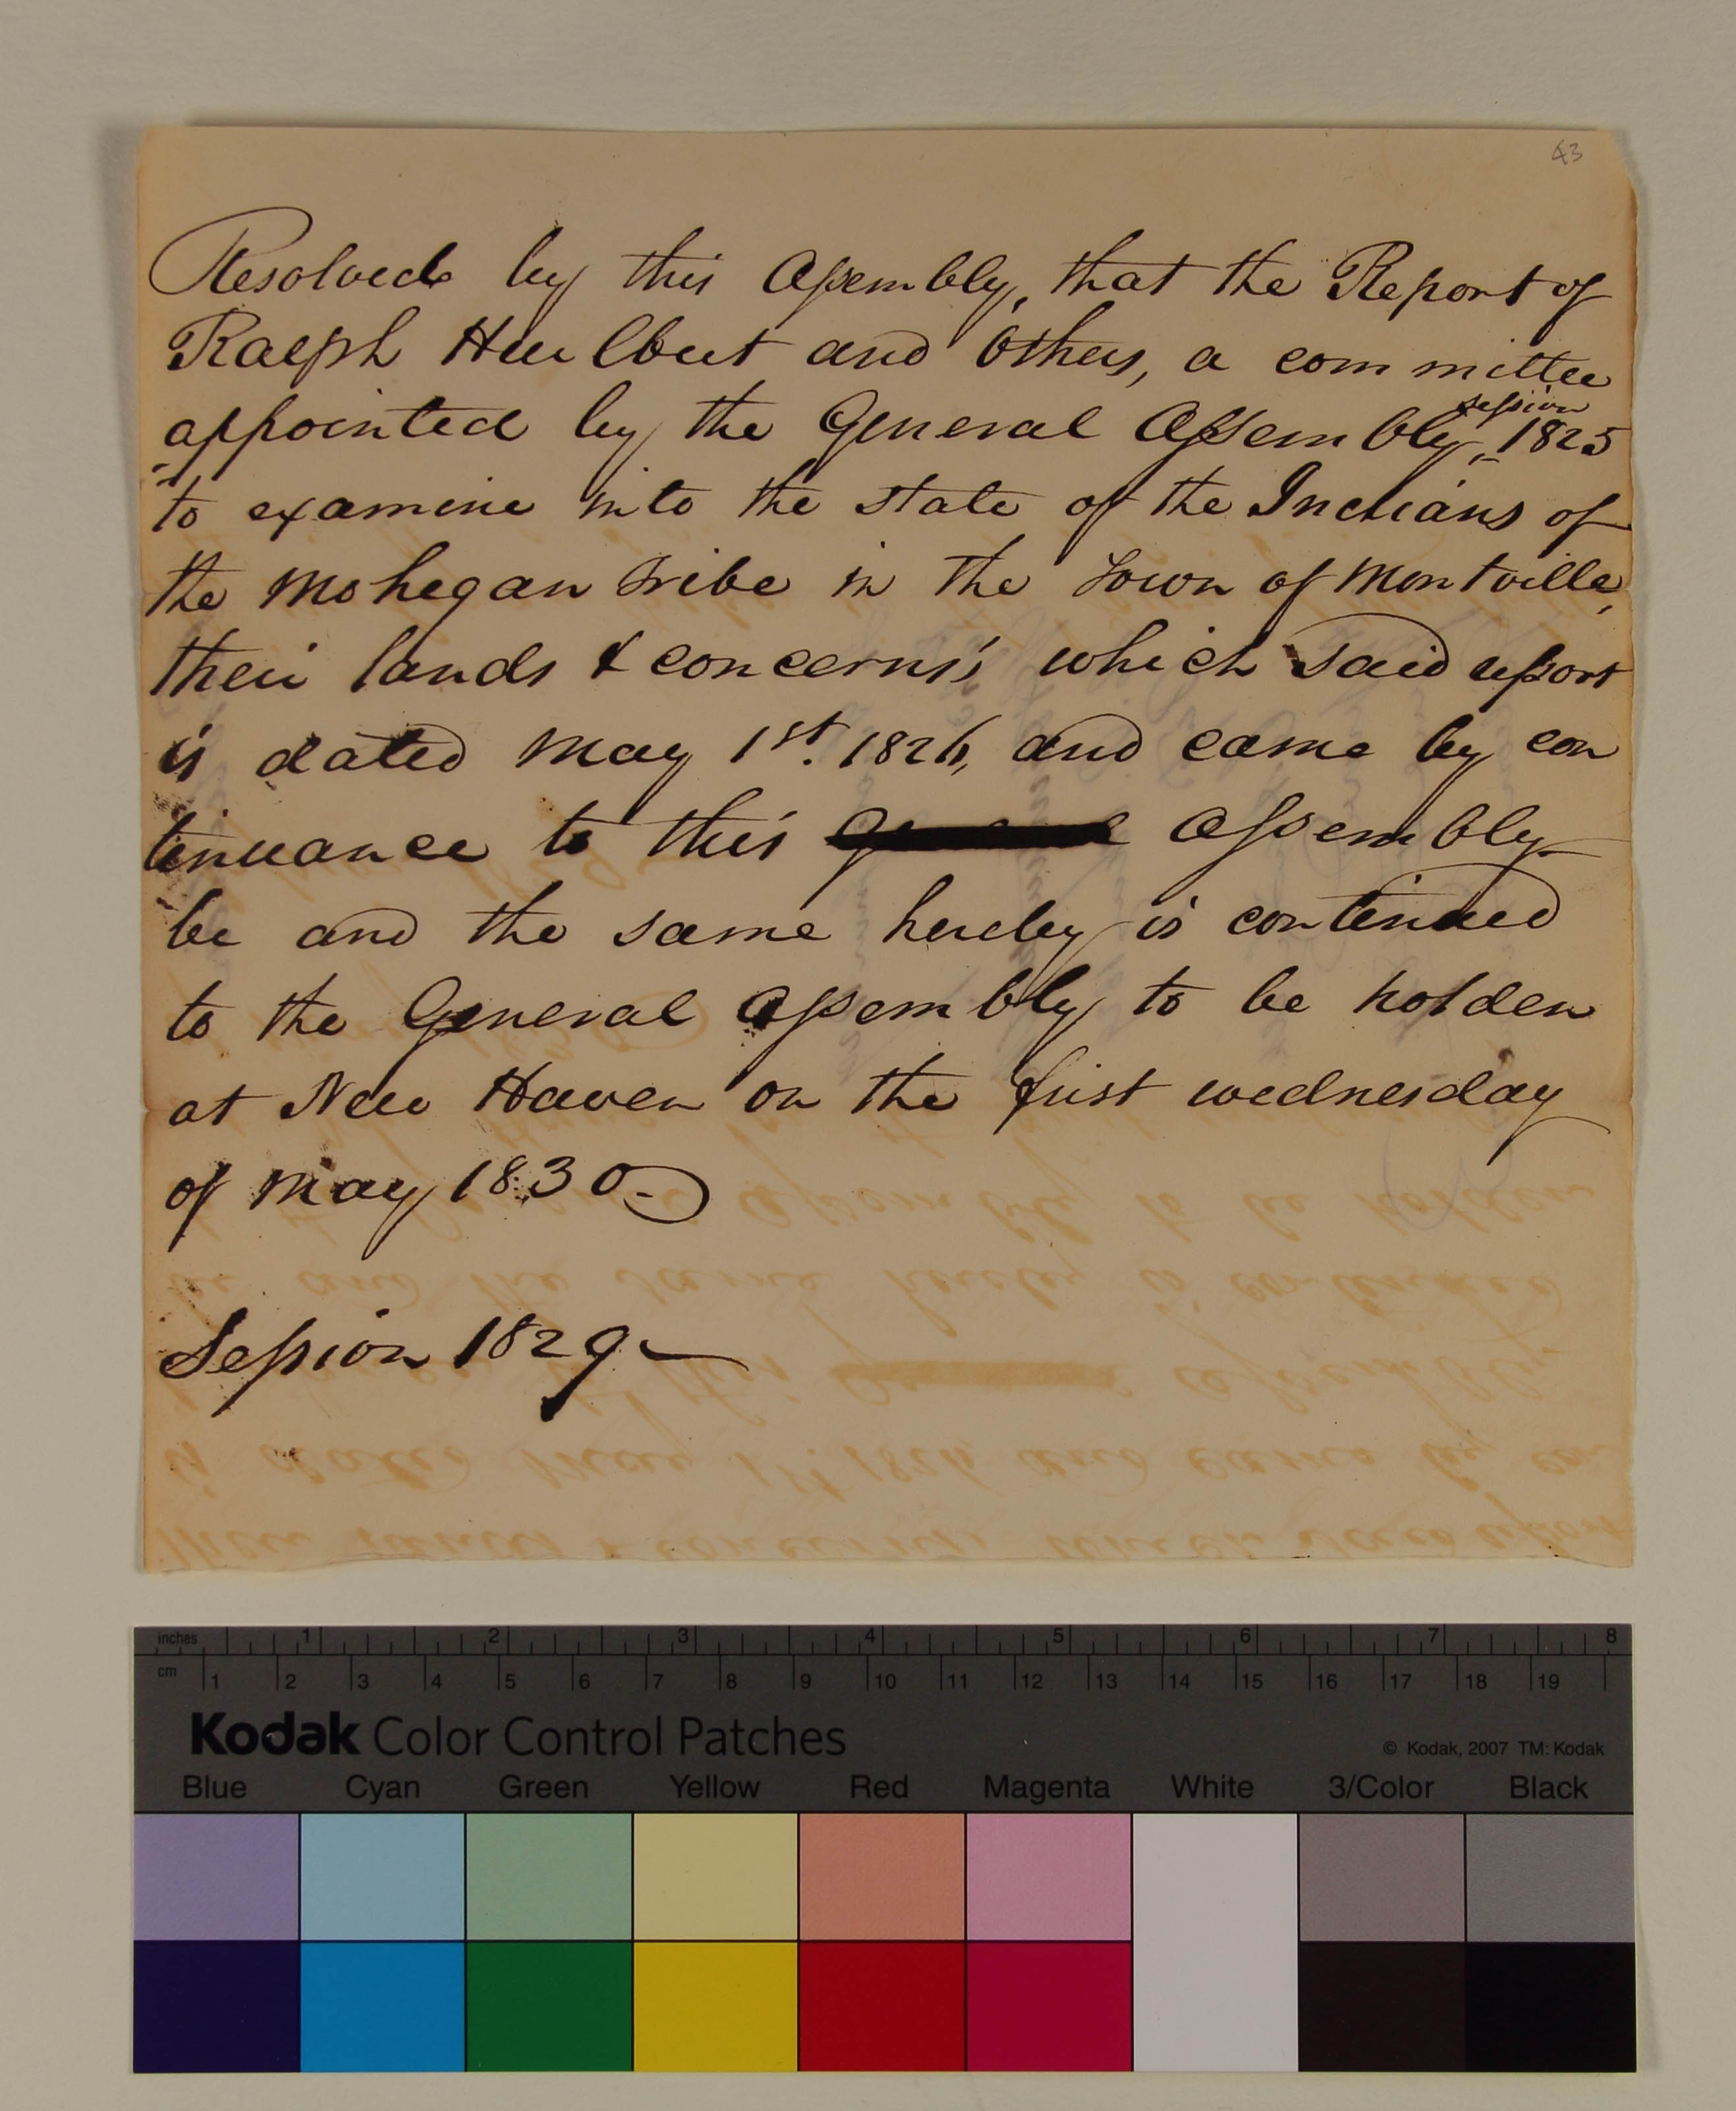 43
Resolved by this Assembly, that the Report of
Ralph Hurlbut and Others, a committee
appointed by the General Assembly, session 1825
to examine into the state of the Indians of
the Mohegan Tribe in the Town of Montville,
their lands & concerns, which said report
is dated May 1st. 1826, and came by con
tinuance to this General Assembly
be and the same hereby is continued
to the General Assembly to be holden
at New Haven on the first wednesday
of May 1830.
Session 1829
inches 1 2 3 4 5 6 7 8
cm 1 2 3 4 5 6 7 8 9 10 11 12 13 14 15 16 17 18 19
Kodak Color Control Patches
© Kodak, 2007 TM: Kodak
Blue Cyan Green Yellow Red Magenta White 3/Color Black